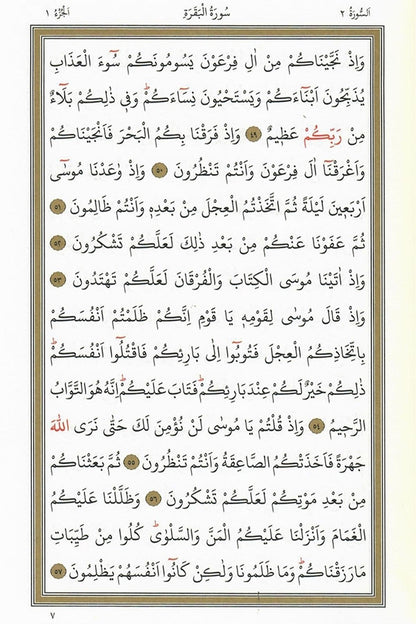 اَلسُّورَةُ ٢ سُورَةُ الْبَقَرَةِ اَلْجُزْءُ ١
وَاِذْ نَجَّيْنَاكُمْ مِنْ اٰلِ فِرْعَوْنَ يَسُومُونَكُمْ سُٓوءَ الْعَذَابِ
يُذَبِّحُونَ اَبْنَٓاءَكُمْ وَيَسْتَحْيُونَ نِسَٓاءَكُمْۜ وَف۪ي ذٰلِكُمْ بَلَٓاءٌ
مِنْ رَبِّكُمْ عَظ۪يمٌ ﴿٤٩﴾ وَاِذْ فَرَقْنَا بِكُمُ الْبَحْرَ فَاَنْجَيْنَاكُمْ
وَاَغْرَقْنَٓا اٰلَ فِرْعَوْنَ وَاَنْتُمْ تَنْظُرُونَ ﴿٥٠﴾ وَاِذْ وٰعَدْنَا مُوسٰٓى
اَرْبَع۪ينَ لَيْلَةً ثُمَّ اتَّخَذْتُمُ الْعِجْلَ مِنْ بَعْدِه۪ وَاَنْتُمْ ظَالِمُونَ ﴿٥١﴾
ثُمَّ عَفَوْنَا عَنْكُمْ مِنْ بَعْدِ ذٰلِكَ لَعَلَّكُمْ تَشْكُرُونَ ﴿٥٢﴾
وَاِذْ اٰتَيْنَا مُوسَى الْكِتَابَ وَالْفُرْقَانَ لَعَلَّكُمْ تَهْتَدُونَ ﴿٥٣﴾
وَاِذْ قَالَ مُوسٰى لِقَوْمِه۪ يَا قَوْمِ اِنَّكُمْ ظَلَمْتُمْ اَنْفُسَكُمْ
بِاتِّخَاذِكُمُ الْعِجْلَ فَتُوبُٓوا اِلٰى بَارِئِكُمْ فَاقْتُلُٓوا اَنْفُسَكُمْۜ
ذٰلِكُمْ خَيْرٌ لَكُمْ عِنْدَ بَارِئِكُمْۜ فَتَابَ عَلَيْكُمْۜ اِنَّهُ هُوَ التَّوَّابُ
الرَّح۪يمُ ﴿٥٤﴾ وَاِذْ قُلْتُمْ يَا مُوسٰى لَنْ نُؤْمِنَ لَكَ حَتّٰى نَرَى اللّٰهَ
جَهْرَةً فَاَخَذَتْكُمُ الصَّاعِقَةُ وَاَنْتُمْ تَنْظُرُونَ ﴿٥٥﴾ ثُمَّ بَعَثْنَاكُمْ
مِنْ بَعْدِ مَوْتِكُمْ لَعَلَّكُمْ تَشْكُرُونَ ﴿٥٦﴾ وَظَلَّلْنَا عَلَيْكُمُ
الْغَمَامَ وَاَنْزَلْنَا عَلَيْكُمُ الْمَنَّ وَالسَّلْوٰىۜ كُلُوا مِنْ طَيِّبَاتِ
مَا رَزَقْنَاكُمْۜ وَمَا ظَلَمُونَا وَلٰكِنْ كَانُٓوا اَنْفُسَهُمْ يَظْلِمُونَ ﴿٥٧﴾
٧